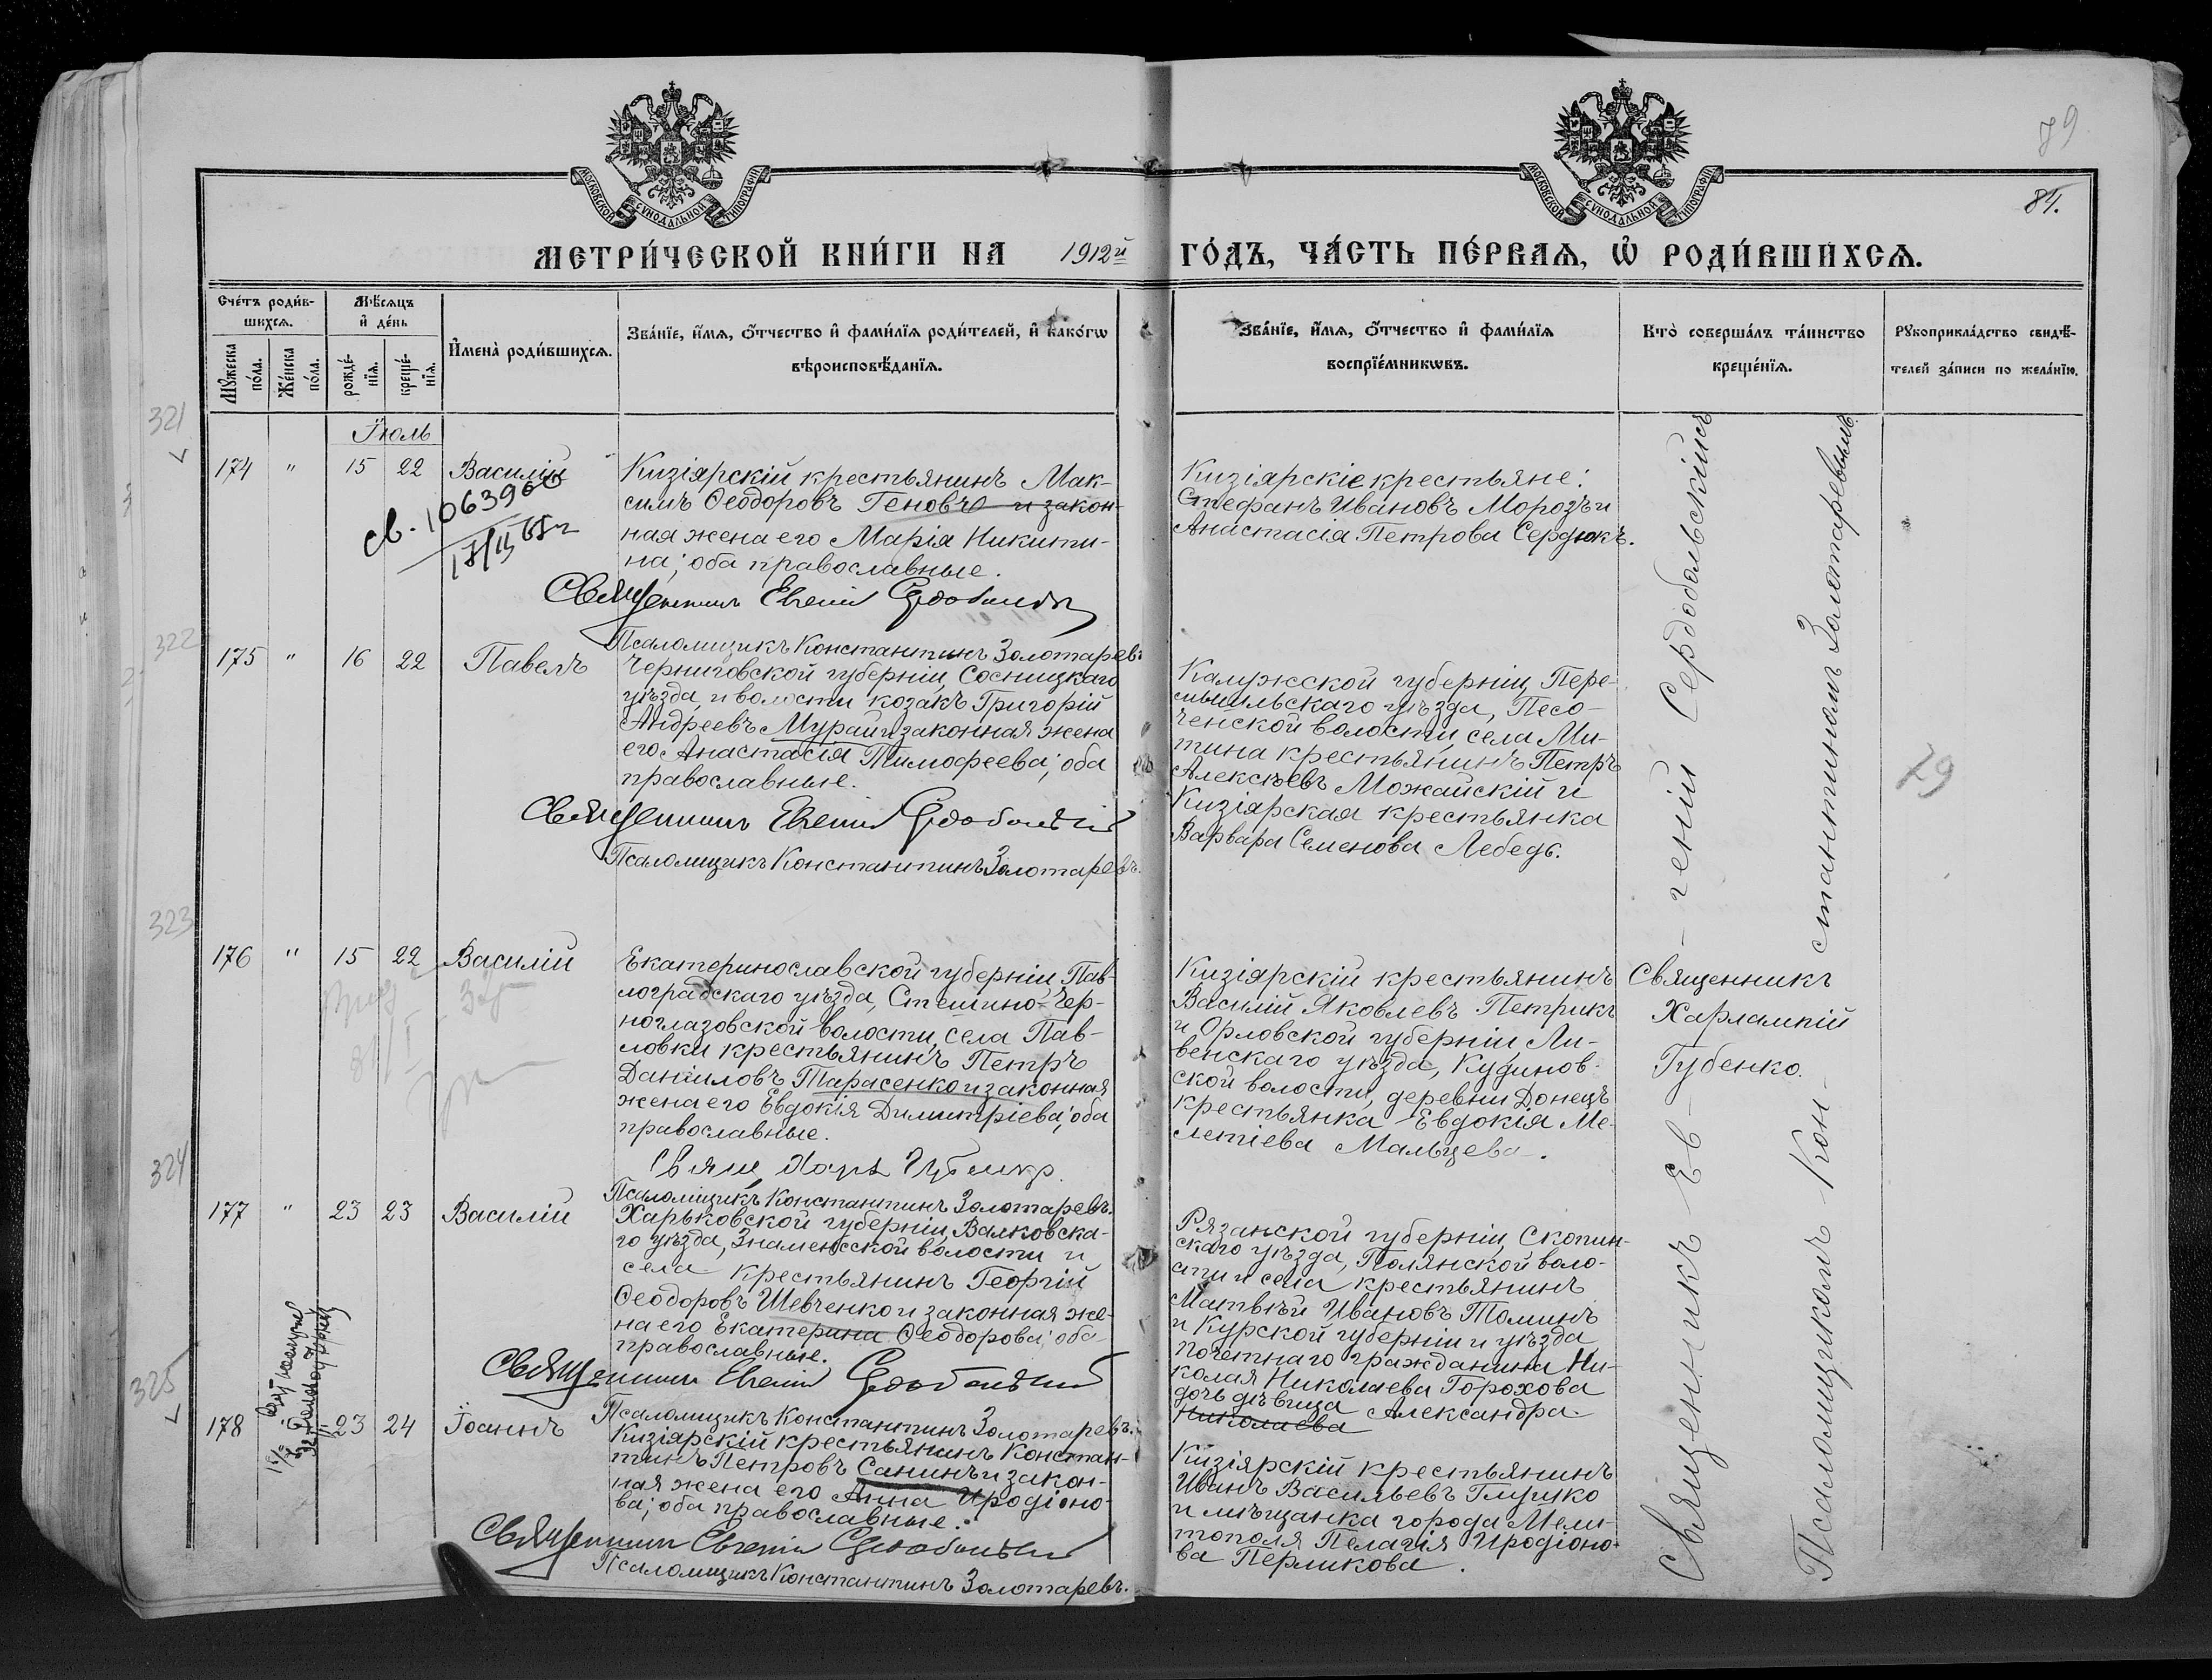 МОСКОВСКОЙ СѴНОДАЛЬНОЙ ТИПОГРАФІИ
МОСКОВСКОЙ СѴНОДАЛЬНОЙ ТИПОГРАФІИ
79
84.
МЕТРИ́ЧЕСКОЙ КНИ́ГИ НА 1912й ГО́ДЪ, ЧА́СТЬ ПЕ́РВАѦ, Ѡ҆ РОДИ́ВШИХСѦ.
Сче́тъ роди́в-
шихсѧ.
Мꙋ́жеска по́ла.
Же́нска по́ла.
Мѣ́сѧцъ
и҆ де́нь
рожде́-
нїѧ.
креще́-
нїѧ.
И҆мена̀ роди́вшихсѧ.
Зва́нїе, и҆́мѧ, ѻ҆́тчество и҆ фами́лїѧ роди́телей, и҆ како́гѡ
вѣроисповѣ́данїѧ.
Зва́нїе, и҆́мѧ, ѻ҆́тчество и҆ фами́лїѧ
воспрїе́мникѡвъ.
Кто̀ соверша́лъ та́инство
креще́нїѧ.
Рꙋкоприкла́дство свидѣ́-
телей за́писи по жела́нїю.
Іюль
321
174 " 15 22 Василій
Кизіярскій крестьянинъ Мак-
симъ Ѳеодоровъ Геновъ и закон-
ная жена его Марія Никити-
на; оба православные.
Священникъ Евгеній Сердобольскій
Псаломщикъ Константинъ Золотаревъ
Кизіярскіе крестьяне:
Стефанъ Ивановъ Морозъ и
Анастасія Петрова Сердюкъ.
св. 1063900
17/II 65г
322
175 " 16 22 Павелъ
Черниговской губерніи, Сосницкаго
уѣзда, и волости козакъ Григорій
Андреевъ Мурай и законная жена
его Анастасія Тимофеева; оба
православные.
Священникъ Евгеній Сердобольскій
Псаломщикъ Константинъ Золотаревъ.
Калужской губерніи, Пере-
мышльскаго уѣзда, Песо-
ченской волости, села Ми-
тина крестьянинъ Петръ
Алексѣевъ Можайскій и
Кизіярская крестьянка
Варвара Семенова Лебедь.
79
323
176 " 15 22 Василій
Екатеринославской губерніи, Пав-
лоградскаго уѣзда, Стешино-Чер-
ноглазовской волости, села Пав-
ловки крестьянинъ Петръ
Даніиловъ Тарасенко и законная
жена его Евдокія Димитріева; оба
православные.
Свящ. Харл. Губенко.
Псаломщикъ Константинъ Золотаревъ.
Кизіярскій крестьянинъ
Василій Яковлевъ Петрикъ
и Орловской губерніи Ли-
венскаго уѣзда, Кудинов-
ской волости, деревни Донецъ
крестьянка Евдокія Ме-
летіева Мальцева.
Священникъ
Харлампій
Губенко.
324
177 " 23 23 Василій
Харьковской губерніи, Валковска-
го уѣзда, Знаменской волости и
села крестьянинъ Георгій
Ѳеодоровъ Шевченко и законная же-
на его Екатерина Ѳеодорова; оба
православные.
Священникъ Евгеній Сердобольскій
Псаломщикъ Константинъ Золотаревъ.
Рязанской губерніи, Скопин-
скаго уѣзда, Полянской воло-
сти и села крестьянинъ
Матвѣй Ивановъ Томинъ
и Курской губерніи и уѣзда
почетнаго гражданина Ни-
колая Николаева Горохова
дочь дѣвица Александра
Николаева
325
178 " 23 24 Іоаннъ
Кизіярскій крестьянинъ Констан-
тинъ Петровъ Санинъ и закон-
ная жена его Анна Иродіоно-
ва; оба православные.
Священникъ Евгеній Сердобольскій
Псаломщикъ Константинъ Золотаревъ.
Кизіярскій крестьянинъ
Иванъ Васильевъ Глушко
и мѣщанка города Мели-
тополя Пелагія Иродіоно-
ва Перликова.
Священникъ Ев-геній Сердобольскій съ
Псаломщикомъ Кон-стантиномъ Золотаревымъ